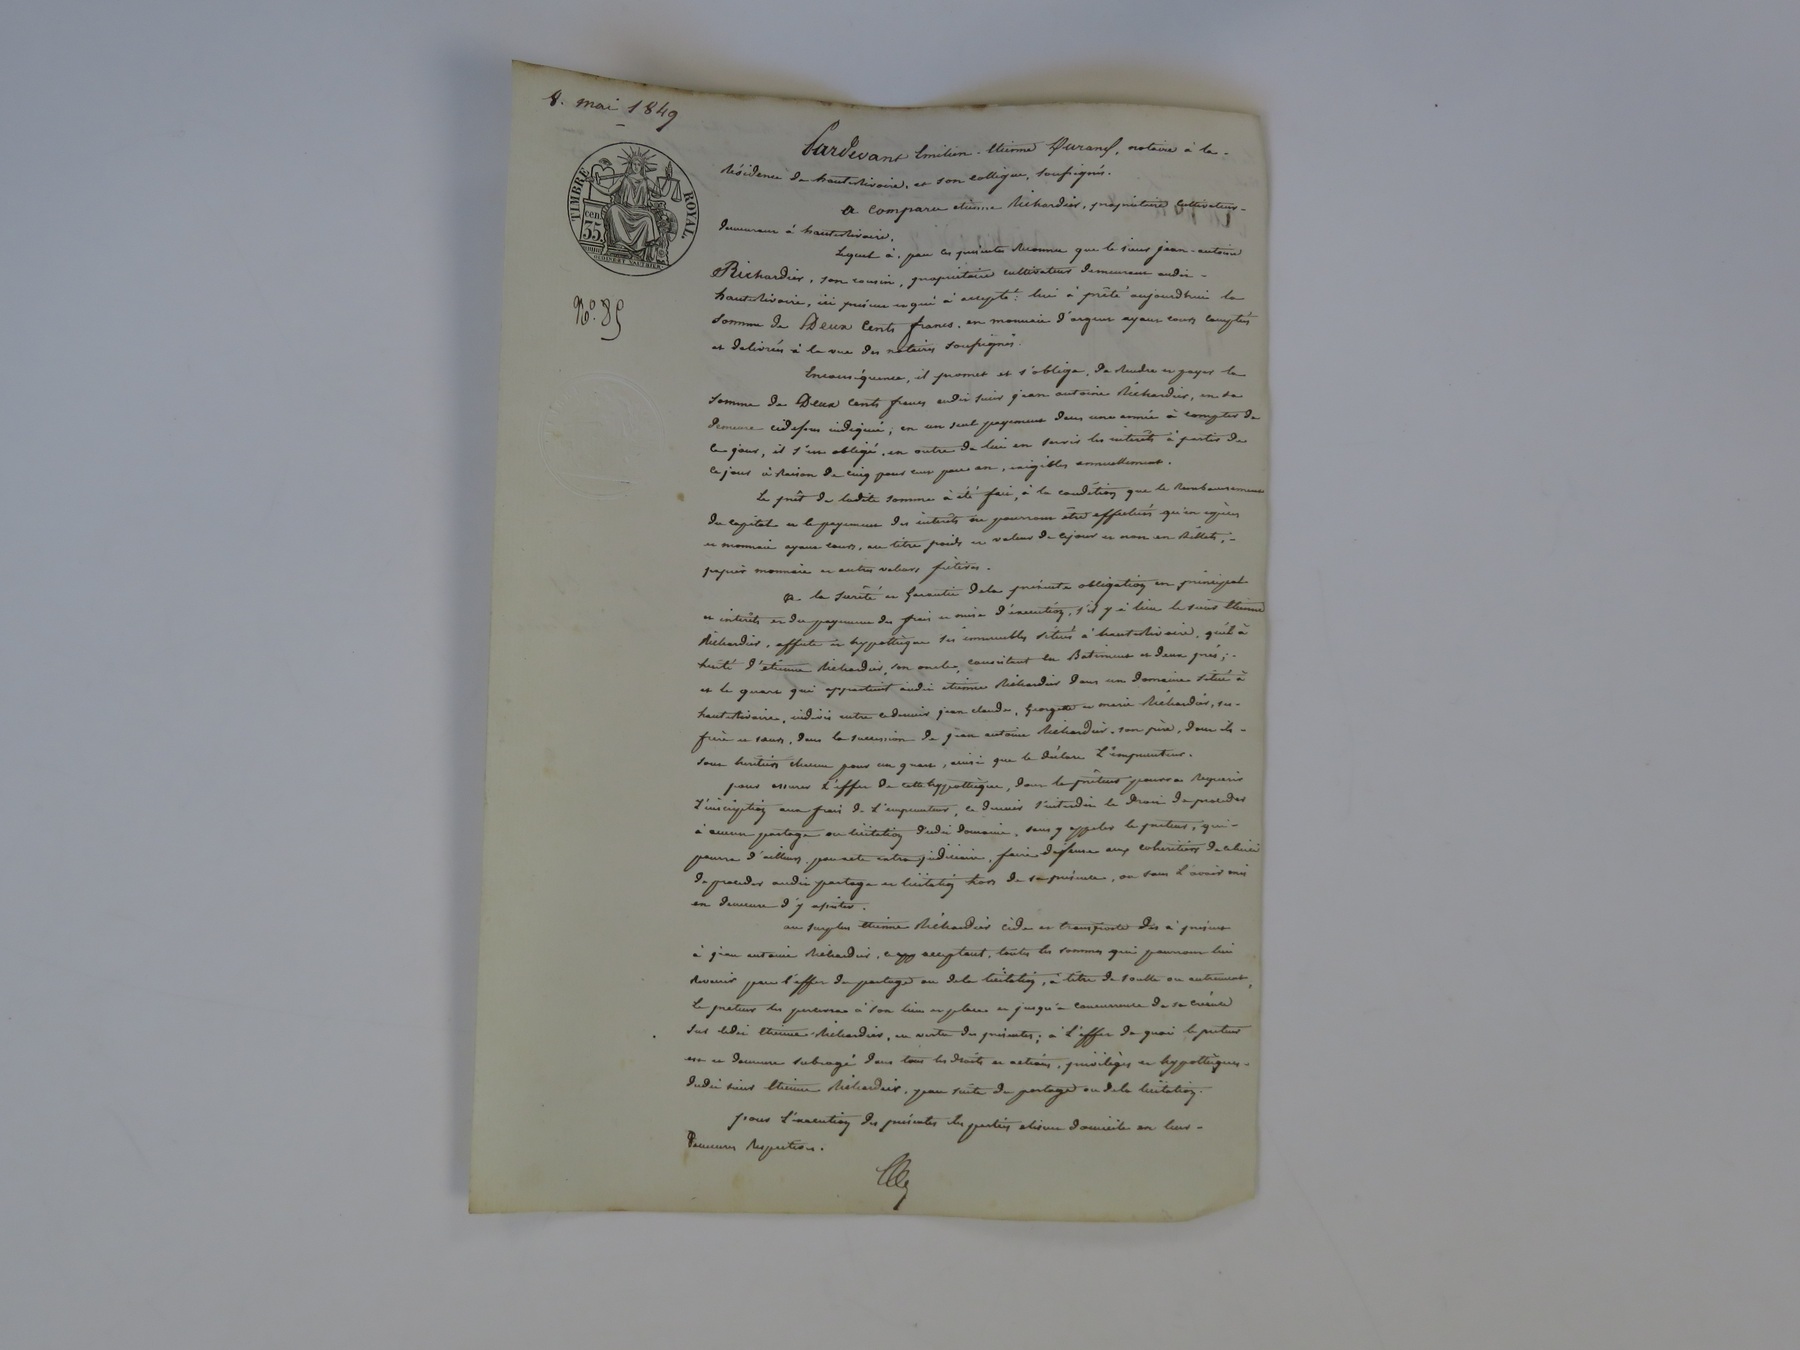 8. mai 1849
TIMBRE ROYAL.
cen.
35
N°. 85
Pardevant Emilien-Etienne Durand, notaire à la-
Résidence de hauterivoire, et son collègue, soussignés.
a comparu etienne Richardier, propriétaire cultivateur-
demeurant à hauterivoire.
Lequel à, par ces présentes Reconnu que le sieur jean-antoine
Richardier, son cousin, propriétaire cultivateur demeurant audit-
hauterivoire, ici présent et qui à accepté: lui à prêté aujourdhui la
somme de Deux Cents francs, en monnaie d'argent ayant cours comptés
et delivrés à la vue des notaires soussignés.
Enconséquence, il promet et s'oblige, de Rendre et payer la
somme de Deux Cents francs audit sieur jean antoine Richardier, en sa
demeure cidessus indiquée; en un seul payement dans une année à compter de
ce jour, il s'en obligé, en outre de lui en servir les intérêts à partir de
ce jour à Raison de cinq pour cent par an, exigibles annuellement.
Le prêt de ladite somme à été fait, à la condition que le Remboursement
du capital et le payement des intérêts ne pourront être effectués qu'en espèces
et monnaie ayant cours, au titre poids et valeur de cejour et non en Billets,-
papier monnaie et autres valeurs fictives.
a la sureté et Garantie dela présente obligation en principal
et intérêts et du payement des frais et mise d'éxecution, s'il y à lieu le sieur Etienne
Richardier, affecte et hypothèque ses immeubles situés à hauterivoire, qu'il à
hérité d'étienne Richardier, son oncle, consistant en Batiment et deux prés;-
et le quart qui appartient audit etienne Richardier dans un domaine situé à
hauterivoire, indivis entre cedernier, jean claude, Georgette et marie Richardier, ses-
frère et sœurs, dans la succession de jean antoine Richardier, son père, dont ils-
sont héritiers chacun pour un quart, ainsi que le déclare L'emprunteur.
pour assurer L'effet de cette hypothèque, dont le prêteur pourra Requerir
L'inscription aux frais de L'emprunteur, ce dernier s'interdit le Droit de proceder
à aucun partage ou licitation dudit domaine, sans y appeler le preteur, qui-
pourra d'ailleurs, par acte extrajudiciaire, faire défense aux cohéritiers de celui-ci
de proceder audit partage et licitation hors de sa présence, ou sans L'avoir mis
en demeure d'y assister.
au surplus Etienne Richardier cède et transporte dès à présent
à jean antoine Richardier, ce acceptant, toutes les sommes qui pourront lui
Revenir par l'effet du partage ou dela licitation, à titre de soulte ou autrement,
Le preteur les percevra à son lieu et place et jusqu'a concurrence de sa créance
sur ledit Etienne Richardier, en vertu des présentes; à L'effet de quoi le preteur
est et demeure subrogé dans tous les droits et actions, privilèges et hypothèques-
dudit sieur Etienne Richardier, par suite du partage ou dela licitation.
pour L'execution des présentes les parties elisent domicile en leurs-
Demeures Respectives.